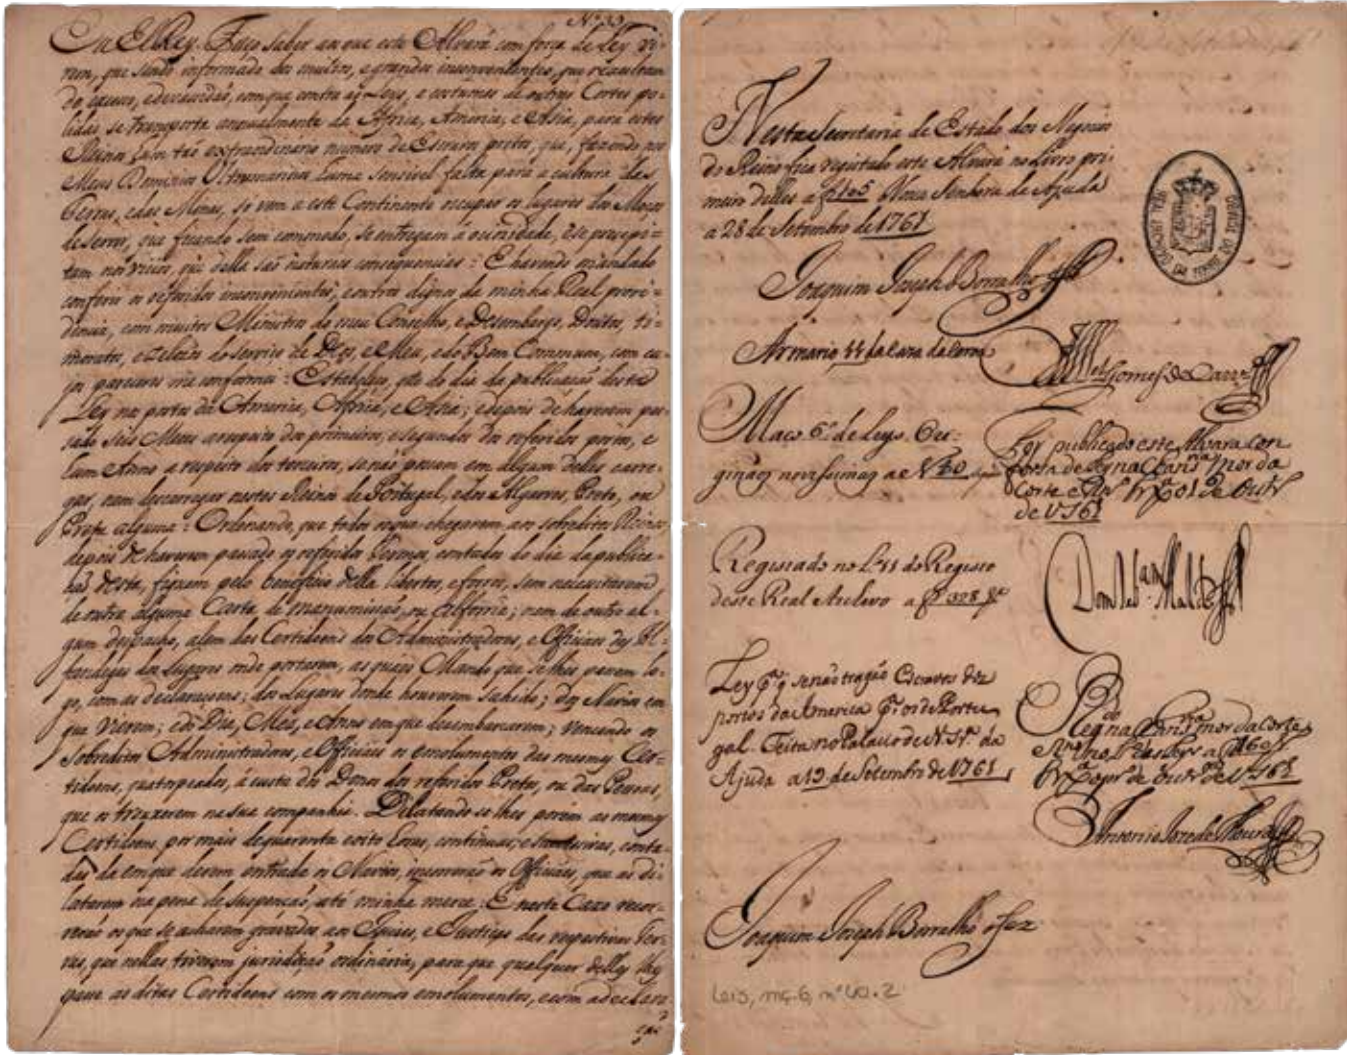 N.º 33
Eu ElRey. Faço saber aos que este Alvará com força de Ley vi=
rem, que sendo informado dos muitos, e grandes inconvenientes, que rezultam
do excesso, e devacidaõ, com que contra as Leys, e costumes de outras Cortes po=
lidas, se transporta annualmente da Africa, America, e Asia, para estes
Reinos hum taõ extraordinario numero de Escravos pretos, que, fazendo nos
Meus Dominios Ultramarinos huma sensivel falta para a cultura das
Terras, e das Minas, só vem a este Continente occupar os lugares dos Moços
de servir, que ficando sem commodo, se entregam á ociosidade, e se precepi=
tam nos vicios, que della saõ naturaes consequencias: E havendo mandado
conferir os referidos inconvenientes, e outros dignos da minha Real provi=
dencia, com muitos Ministros do meu Conselho, e Desembargo, Doutos, ti=
moratos, e zelosos do serviço de Deos, e Meu, e do Bem Commum, com cu=
jos pareceres me conformei: Estabeleço, que do dia da publicaçaõ desta
Ley nos portos da America, Africa, e Asia; e depois de haverem pas=
sado seis Mezes a respeito dos primeiros, e segundos dos referidos portos, e
hum Anno a respeito dos terceiros, se naõ possam em algum delles carre=
gar, nem descarregar nestes Reinos de Portugal, e dos Algarves, Preto, ou
Preta alguma: Ordenando, que todos os que chegarem aos sobreditos Reinos,
depois de haverem passado os referidos Termos, contados do dia da publica=
çaõ desta, fiquem pelo beneficio della libertos, e forros, sem necessitarem
de outra alguma Carta de manumissaõ, ou Alforria; nem de outro al=
gum despacho, alem das Certidoens dos Administradores, e Officiaes das Al=
fandegas dos Lugares onde portarem, as quaes Mando que se lhes passem lo=
go, com as declaraçoens; dos Lugares donde houverem sahido; dos Navios em
que vierem; e do Dia, Mez, e Anno em que desembarcarem; vencendo os
sobreditos Administradores, e Officiaes os emolumentos das mesmas Cer=
tidoens, quatropeados, á custa dos Donos dos referidos Pretos, ou das Pessoas,
que os trouxerem na sua companhia. Dilatando-se-lhes porém as mesmas
Certidoens por mais de quarenta e oito horas, continuas, e successivas, conta=
das da em que derem entrada os Navios, incorreráõ os Officiaes, que as di=
latarem na pena de suspençaõ, até minha merce: E neste Cazo recor=
reráõ os que se acharem gravados aos Juizes, e Justiças das respectivas Ter=
ras, que nellas tiverem jurisdiçaõ ordinaria, para que qualquer delles lhes
passe as ditas Certidoens com os mesmos emolumentos, e com a declara=
çaõ
Nesta Secretaria de Estado dos Negocios
do Reino fica registado este Alvará no Livro pri=
meiro delles a f. 105 Nossa Senhora da Ajuda
a 28 de Setembro de 1761
Joaquim Joseph Borralho
Armario 11 da Caza da Coroa
Mel Gomes de Carv.º
Maço 6.º de Leys Ori=
ginaes novissimas ae N.º 40
Foy publicado este Alvara com
força de Ley na Chanc.ª mor da
Corte e Rn.º Lx.ª 01 de Outr.º
de 1761
Dom Seb.am Maldo
Registado no L.º 11 do Registo
deste Real Archivo a f. 328
Ley p.ª q se não tragão Escravos dos
portos da America p.ª os de Portu
gal. Feita no Palacio de N. Sr.ª da
Ajuda a 19 de Setembro de 1761
R.do
na Chanc.ª mor da Corte
e Rn.º no L.º das Leys a f. 160
Lx.ª o pr.º de Outr.º de 1761
Antonio Joze de Moura
Joaquim Joseph Borralho o fez
Leis, mç. 6, nº 40.2